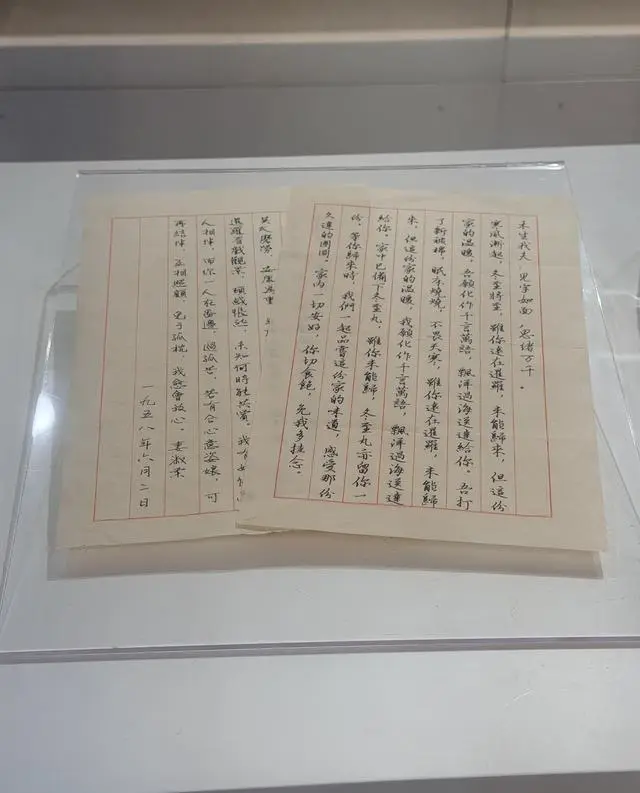 木生我夫 見字如面 思緒万千。
寒風漸起，冬至將至，雖你遠在暹羅，未能歸來，但這份
家的温暖，吾願化作千言萬語，飄洋過海送達給你。吾打
了新被褥，眠床燒燒，不畏天寒，雖你遠在暹羅，未能歸
來，但這份家的温暖，我願化作千言萬語，飄洋過海送達
給你。家中已備下冬至丸，雖你未能歸，冬至丸亦留你一
份，等你歸來時，我們一起品嘗這份家的味道，感受那份
久違的團圓。家內一切安好，你切食飽，免我多挂念。
安康為重
暹羅有戲觀景，未知何時能共賞。我有
人相伴，而你一人在番邊，過孤苦，若有合心意姿娘，可
再結伴，互相照顧，免于孤枕，我愈會放心。妻淑柔
一九五八年六月二日